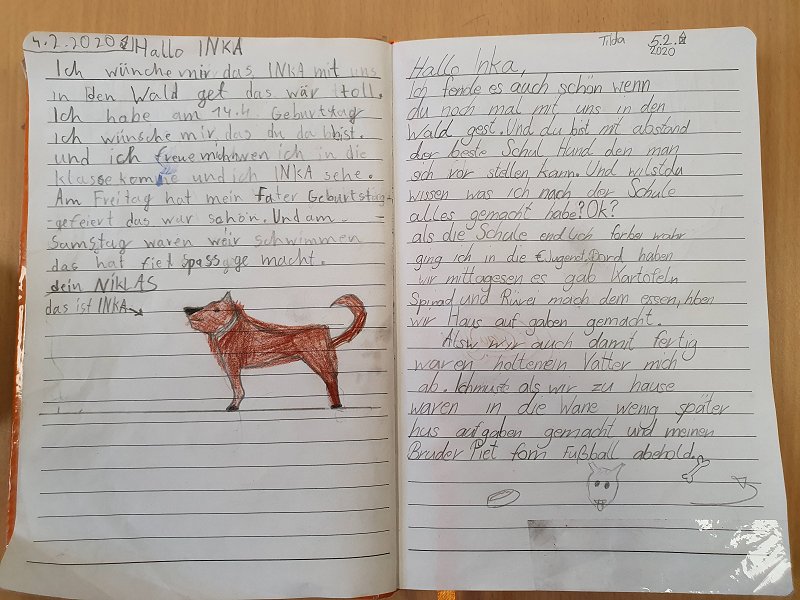 4.2.2020 Hallo INKA
Ich wünche mir das INKA mit uns
in den Wald get das wär toll.
Ich habe am 14.4 Geburtstag
Ich wünsche mir das du da bbist.
und ich freue mich wen ich in die
klasse komme und ich INKA sehe.
Am Freitag hat mein Fater Geburtstag
gefeiert das war schön. Und am
Samstag waren weir schwimmen
das hat fiel spass gge macht.
dein NIKLAS
das ist INKA
Tilda 5.2.
2020
Hallo Inka,
Ich fände es auch schön wenn
du noch mal mit uns in den
Wald gest. Und du bist mit abstand
der beste Schul Hund den man
sich vor stellen kann. Und wilst du
wissen was ich nach der Schule
alles gemacht habe? Ok?
als die Schule endlich forbei wahr
ging ich in die Jugend haben
wir mittagesen es gab Kartofeln
Spinad und nach dem essen, hben
wir Haus auf gaben gemacht.
Alsw wir auch damit fertig
waren holte mein Vatter mich
ab. Ich muste als wir zu hause
waren in die Wane wenig später
hus aufgaben gemacht und meinen
Bruder Piet fom Fußball abehold.